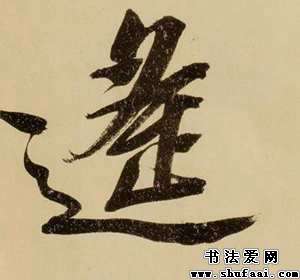 遙
书法爱网
www.shufaai.com